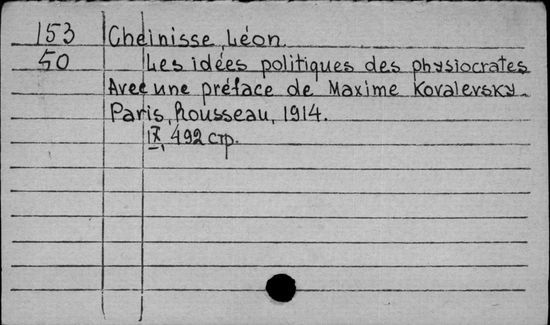 153 Cheinisse, Léon.
50 Les idées politiques des physiocrates
Avec une préface de Maxime Kovalevsky.
Paris, Rousseau, 1914.
IX, 492 стр.